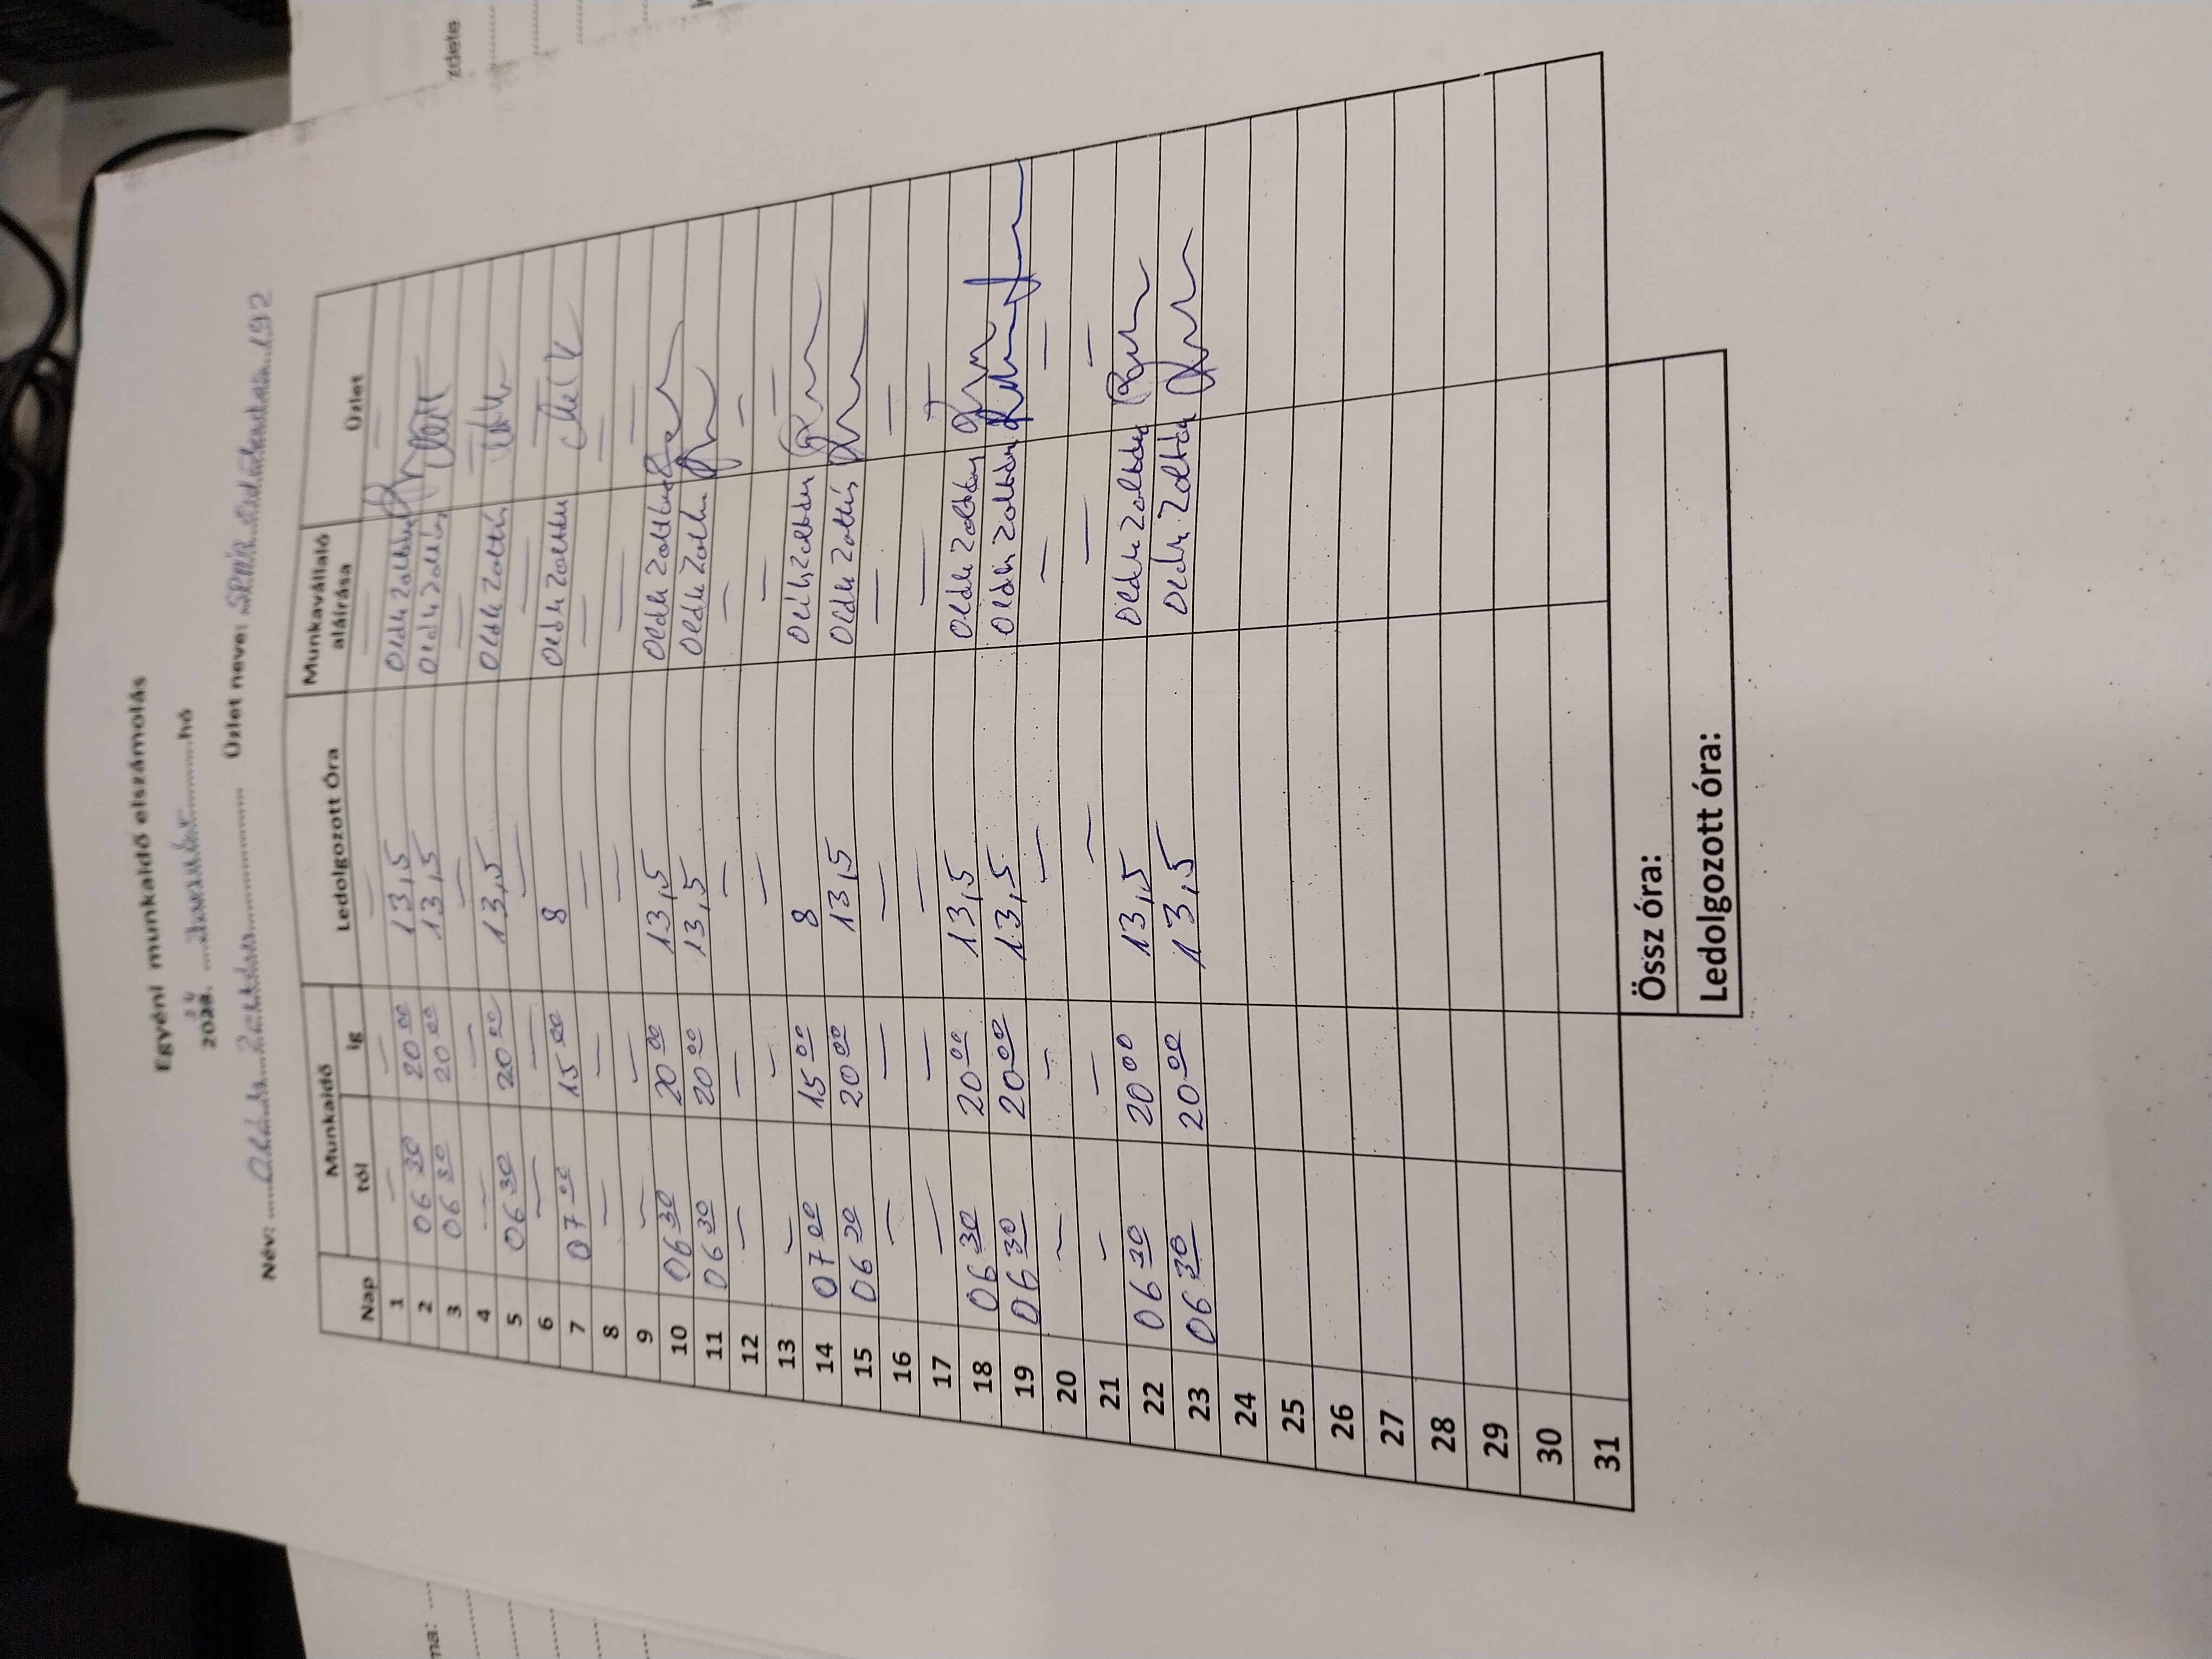 Egyéni munkaidő elszámolás
202 hó
Név: Oláh Zoltán Üzlet neve: SPAR 192
Nap Munkaidő Ledolgozott Óra Munkavállaló aláírása Üzlet
tól ig
1 — — — — —
2 06 30 20 00 13,5 Oláh Zoltán
3 06 30 20 00 13,5 Oláh Zoltán
4 — — — — —
5 06 30 20 00 13,5 Oláh Zoltán
6 — — — — —
7 07 00 15 00 8 Oláh Zoltán
8 — — — — —
9 — — — — —
10 06 30 20 00 13,5 Oláh Zoltán
11 06 30 20 00 13,5 Oláh Zoltán
12 — — — — —
13 — — — — —
14 07 00 15 00 8 Oláh Zoltán
15 06 30 20 00 13,5 Oláh Zoltán
16 — — — — —
17 — — — — —
18 06 30 20 00 13,5 Oláh Zoltán
19 06 30 20 00 13,5 Oláh Zoltán
20 — — — — —
21 — — — — —
22 06 30 20 00 13,5 Oláh Zoltán
23 06 30 20 00 13,5 Oláh Zoltán
24
25
26
27
28
29
30
31
Össz óra:
Ledolgozott óra: